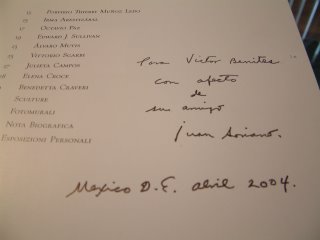 15 Porfirio Thierry Muñoz Ledo
15 Irma Arestizábal
17 Octavio Paz
19 Edward J. Sullivan
Álvaro Mutis
Vittorio Sgarbi
17 Julieta Campos
Elena Croce
Benedetta Craveri
Sculture
Fotomurali
Nota Biografica
Esposizioni Personali
Para Víctor Benites
con afecto
de
su amigo
Juan Soriano.
Mexico D.F. abril 2004.